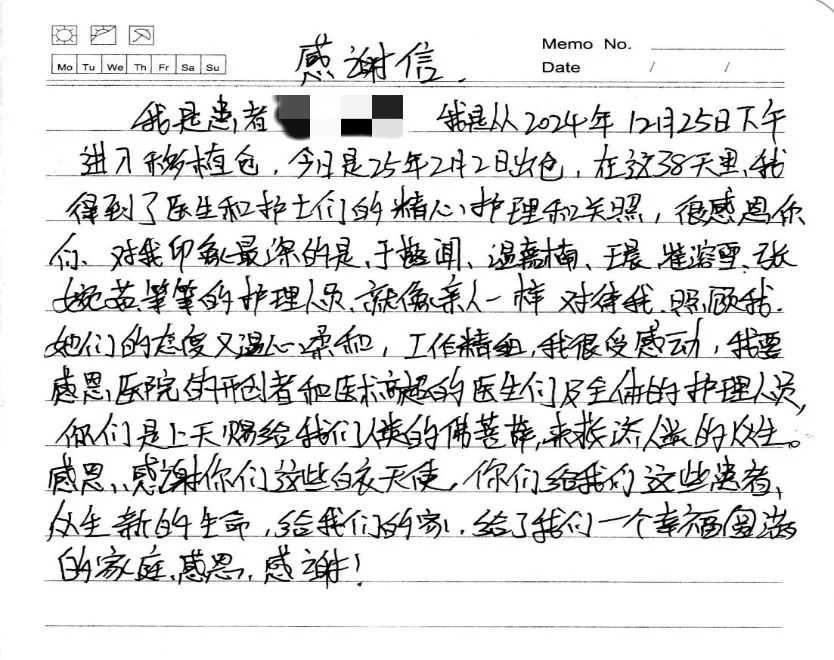 Mo Tu We Th Fr Sa Su
Memo No.
Date / /
感谢信.
我是患者 我是从2024年12月25日下午
进入移植仓，今日是25年2月2日出仓，在这38天里,我
得到了医生和护士们的精心护理和关照，很感恩你
们、对我印象最深的是、于 闻、温嘉楠、王晨、崔溶雪、张
婉茹、等等的护理人员、就像亲人一样 对待我.照顾我.
她们的态度又温心柔和，工作精细,我很受感动，我要
感恩,医院的开创者和医术高超的医生们及全体的护理人员,
你们是上天赐给我们人类的佛菩萨,来救济人类的众生。
感恩、感谢你们这些白衣天使，你们给我们这些患者、
众生新的生命，给我们的家，给了我们一个幸福圆满
的家庭、感恩，感谢！